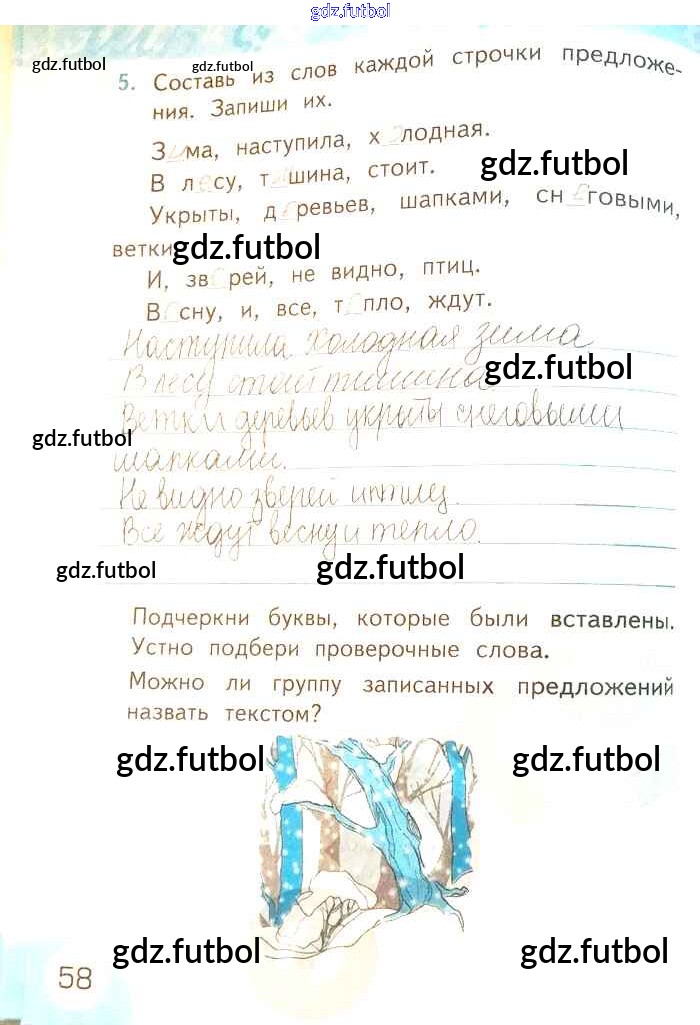 gdz.futbol
gdz.futbol gdz.futbol
5. Составь из слов каждой строчки предложе-
ния. Запиши их.
Зима, наступила, холодная.
В лесу, тишина, стоит. gdz.futbol
Укрыты, деревьев, шапками, снеговыми,
ветки gdz.futbol
И, зверей, не видно, птиц.
Весну, и, все, тепло, ждут.
Наступила холодная зима
В лесу стоит тишина gdz.futbol
Ветки деревьев укрыты снеговыми
gdz.futbol
шапками.
Не видно зверей и птиц.
Все ждут весну и тепло.
gdz.futbol gdz.futbol
Подчеркни буквы, которые были вставлены.
Устно подбери проверочные слова.
Можно ли группу записанных предложений
назвать текстом?
gdz.futbol gdz.futbol
gdz.futbol gdz.futbol
58